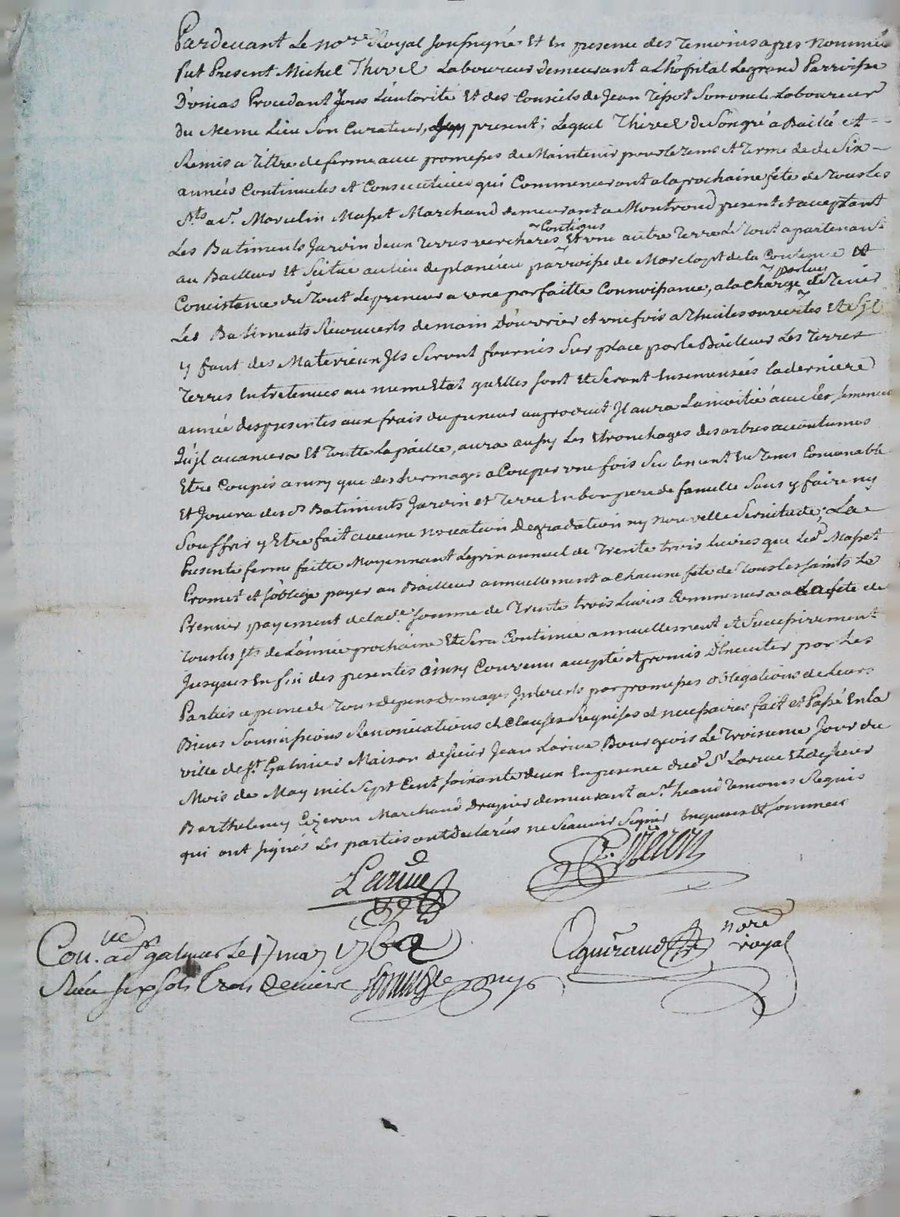 Pardevant Le no.re Royal Soussigné Et En presence des Temoins apres Nommés
fut Present Michel Thevel Laboureur demeurant a Lhopital Legrand Parroisse
Procedant Sous Lautorité Et des Conseils de Jean Laboureur
du Meme Lieu Son Curateur, present; Lequel Thevel de Son gré a Bailié et
Remis a Tittre de ferme avec promesses de Maintenir pour le tems et terme de de Six
années Continuelles et Consecutives qui Commenceront a la prochaine fête de tous les
Sts a Sr Marcelin Maset Marchand demeurant a Montrond present et acceptant
Les Batiments Jardin deux Terres vercheres Contigues Et une autre Terre le tout apartenant
au Bailleur Et Scitué au Lieu de planieu parroisse de Marclopt de la Contenue Et
Concistance du Tout Le preneur a une parfaitte Connoissance, a la Charge par luy de Tenir
Les Batiments Recouverts de main D'ouvrier et une fois a Thuiles ouvertes Et Sil
y faut des Materieaux Ils Seront fournis Sur place par le Bailleur Les Terres
Terres Entretenues au meme Etat quelles Sont Et Seront Ensemensées la derniere
année des presentes aux frais du preneur au produit Il aura La moitié avec les Semences
Qu'il avancera Et Toutte La paille, aura aussy Les Etronchages des arbres accoutumés
Etre Coupés ainsy que des a Couper une fois Seulement En tems Convenable
Et Jouira des.d Batiments Jardin et Terre En bon pere de famille Sans y faire ny
Souffrir y Etre fait aucune novation Degradation ny nouvelle Servitude; La
Presente ferme faitte Moyennant Le prix annuel de Trente trois Livres que Led. Maset
Promet et S'oblige payer au Bailleur annuellement a Chacune fête de Tous les Saints Le
Premier payement de lad.e Somme de Trente trois Livres Commencera a La fête de
Tous les Sts de L'année prochaine Et Sera Continué annuellement et Successivement
Jusques En fin des presentes ainsy Convenu accepté et promis D'Executer par Les
Parties a peine de Tous depens Domages Interets par promesses obligations de Leurs
Biens Soumissions Renonciations et Clauses Requises et necessaires fait et Passé En la
ville de St. Galmier Maison de Sieur Jean Larue Bourgeois Le Troisieme Jour du
Mois de May mil Sept Cent Soixante deux En presence dud. Sr Larue Et de Sieur
Barthelemy Marchand Drapier demeurant a St. heand Temoins Requis
qui ont Signés Les parties ont declarés ne Scavoir Signer Enquises Et Sommées
Larue
nore
royal
Con.ue a St galmier le 17 may 1762
Reçu Six Sols trois deniers